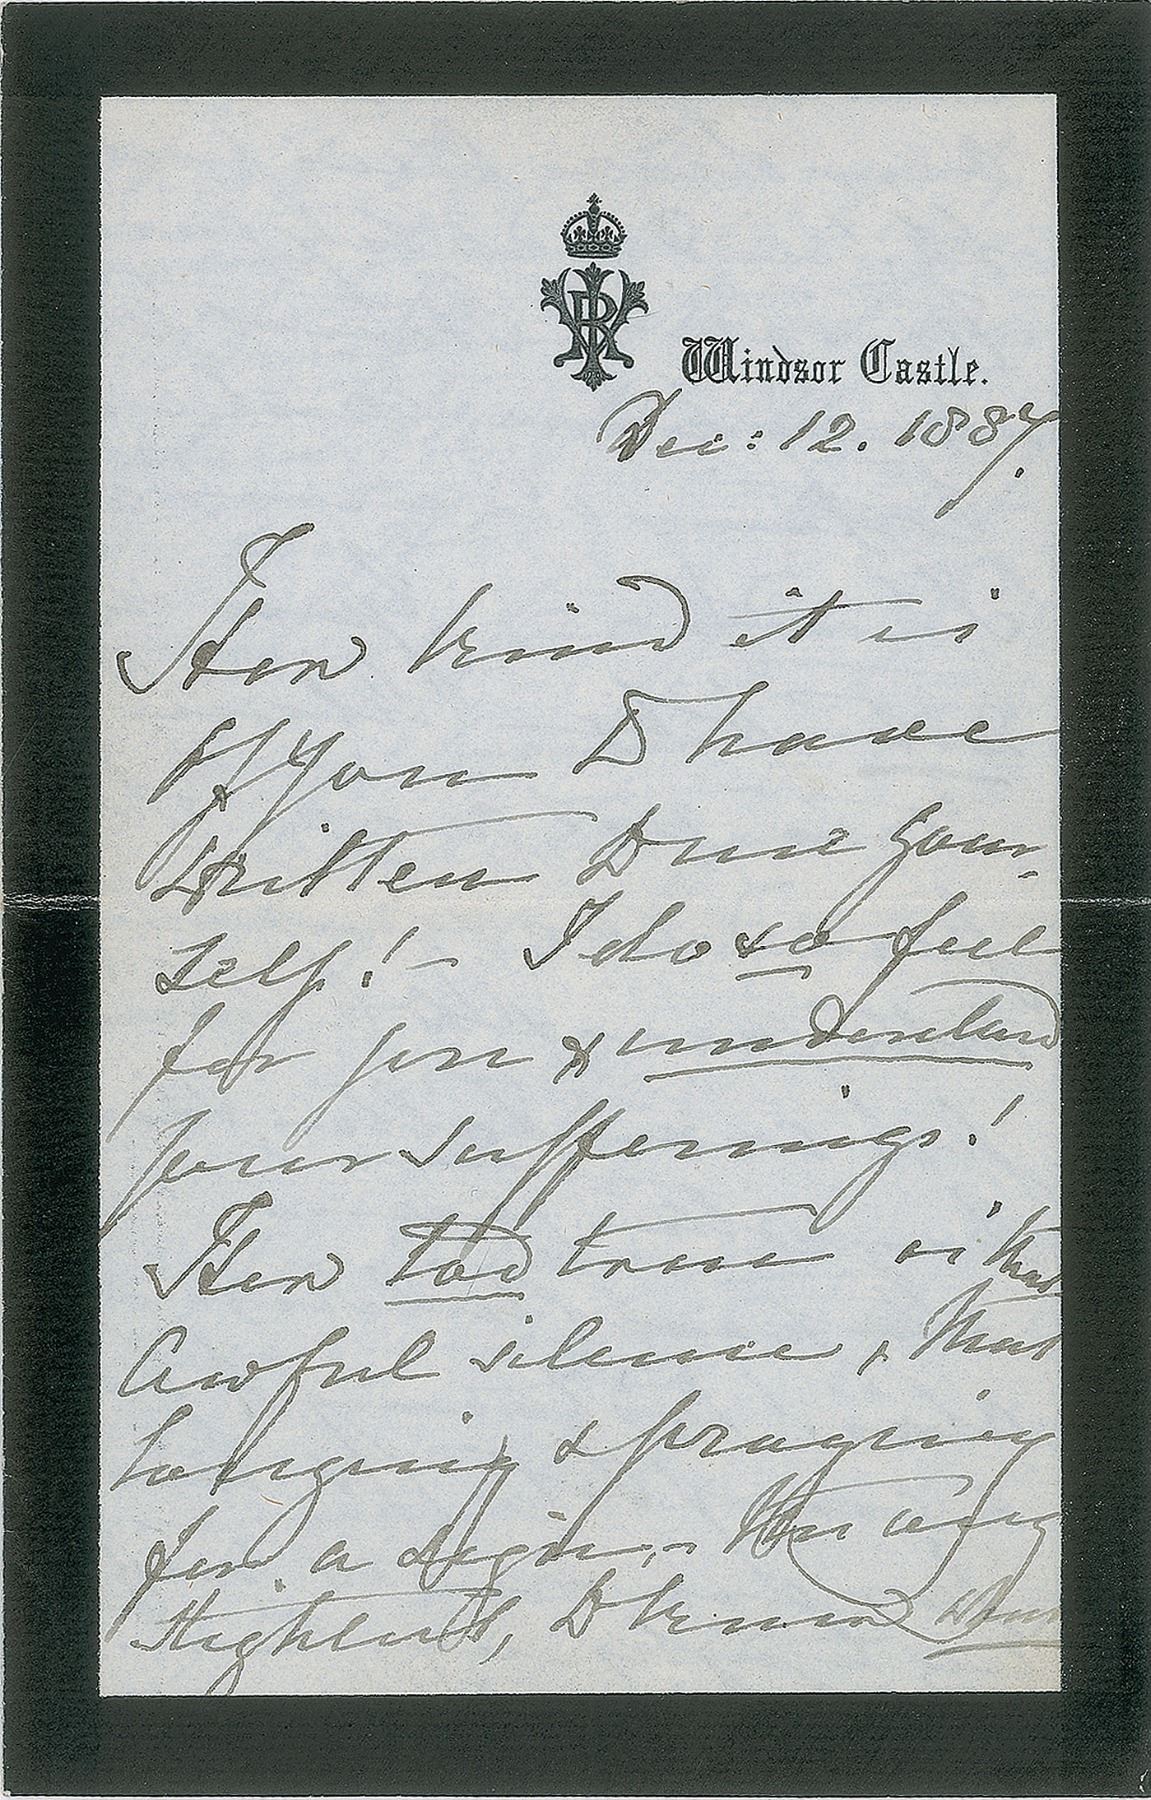 VRI
Windsor Castle.
Dec: 12. 1887.
How kind it is
of you to have
written to me your-
self! — I do so feel
for you & understand
your sufferings!
How too true is that
awful silence, & that
longing & praying
for a sign, —
to know